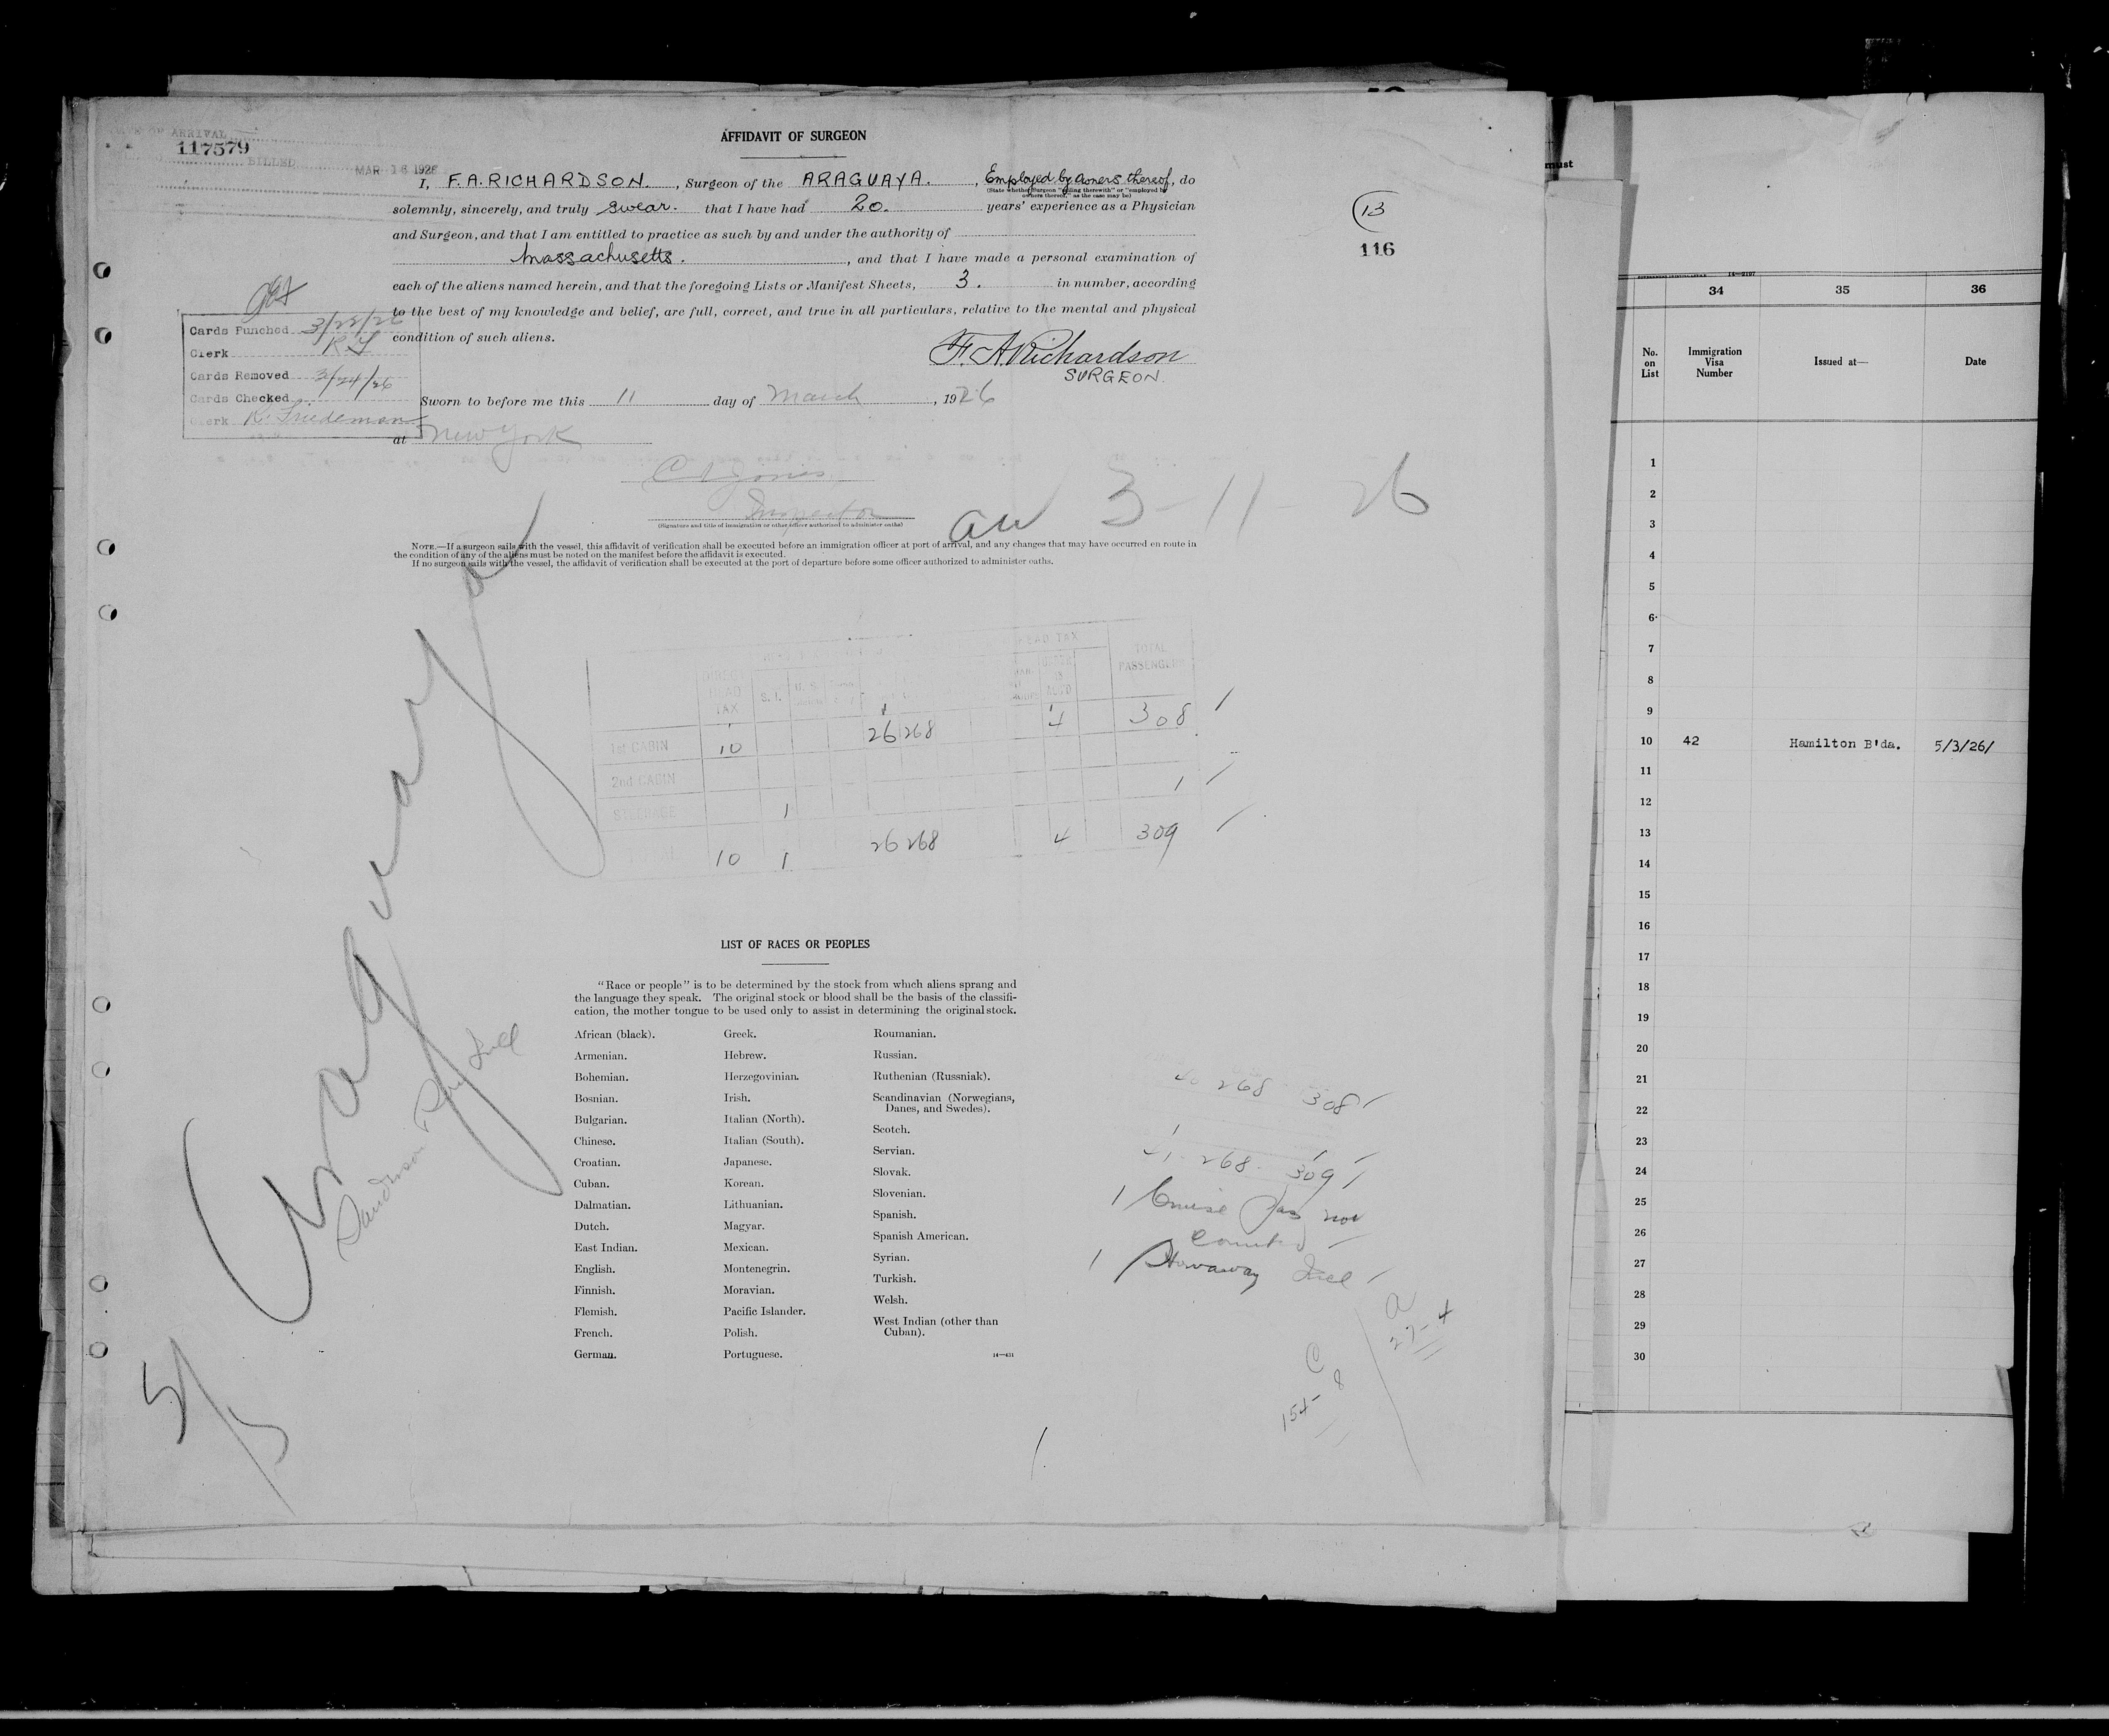 ARRIVAL
117579
BILLED
MAR 16 1926
AFFIDAVIT OF SURGEON
I, F. A. RICHARDSON. , Surgeon of the ARAGUAYA. , Employed by owners thereof, do
(State whether Surgeon "sailing therewith" or "employed by
owners thereof," as the case may be)
solemnly, sincerely, and truly swear. that I have had 20. years' experience as a Physician
and Surgeon, and that I am entitled to practice as such by and under the authority of
Massachusetts. , and that I have made a personal examination of
each of the aliens named herein, and that the foregoing Lists or Manifest Sheets, 3. in number, according
to the best of my knowledge and belief, are full, correct, and true in all particulars, relative to the mental and physical
condition of such aliens.
F. A. Richardson
SURGEON.
Sworn to before me this 11 day of March , 1926
at New York
Inspector
(Signature and title of immigration or other officer authorized to administer oaths)
13
116
Cards Punched 3/23/26
Clerk
Cards Removed 3/24/26
Cards Checked
Clerk K. Friedeman
3-11-26
NOTE.—If a surgeon sails with the vessel, this affidavit of verification shall be executed before an immigration officer at port of arrival, and any changes that may have occurred en route in
the condition of any of the aliens must be noted on the manifest before the affidavit is executed.
If no surgeon sails with the vessel, the affidavit of verification shall be executed at the port of departure before some officer authorized to administer oaths.
Araguaya
DIRECT HEAD TAX
S. I.
HEAD TAX
TOTAL PASSENGERS
1st CABIN 10 26 268 4 308
2nd CABIN 1
STEERAGE 1
10 1 26 268 4 309
LIST OF RACES OR PEOPLES
"Race or people" is to be determined by the stock from which aliens sprang and
the language they speak. The original stock or blood shall be the basis of the classifi-
cation, the mother tongue to be used only to assist in determining the original stock.
African (black).
Armenian.
Bohemian.
Bosnian.
Bulgarian.
Chinese.
Croatian.
Cuban.
Dalmatian.
Dutch.
East Indian.
English.
Finnish.
Flemish.
French.
German.
Greek.
Hebrew.
Herzegovinian.
Irish.
Italian (North).
Italian (South).
Japanese.
Korean.
Lithuanian.
Magyar.
Mexican.
Montenegrin.
Moravian.
Pacific Islander.
Polish.
Portuguese.
Roumanian.
Russian.
Ruthenian (Russniak).
Scandinavian (Norwegians,
Danes, and Swedes).
Scotch.
Servian.
Slovak.
Slovenian.
Spanish.
Spanish American.
Syrian.
Turkish.
Welsh.
West Indian (other than
Cuban).
40 268 308
1 1
41 268 309
1 Cruise pas not
counted
1 Stowaway Incl
must
34 35 36
No. on List
Immigration Visa Number
Issued at—
Date
1
2
3
4
5
6
7
8
9
10 42 Hamilton B'da. 5/3/26/
11
12
13
14
15
16
17
18
19
20
21
22
23
24
25
26
27
28
29
30